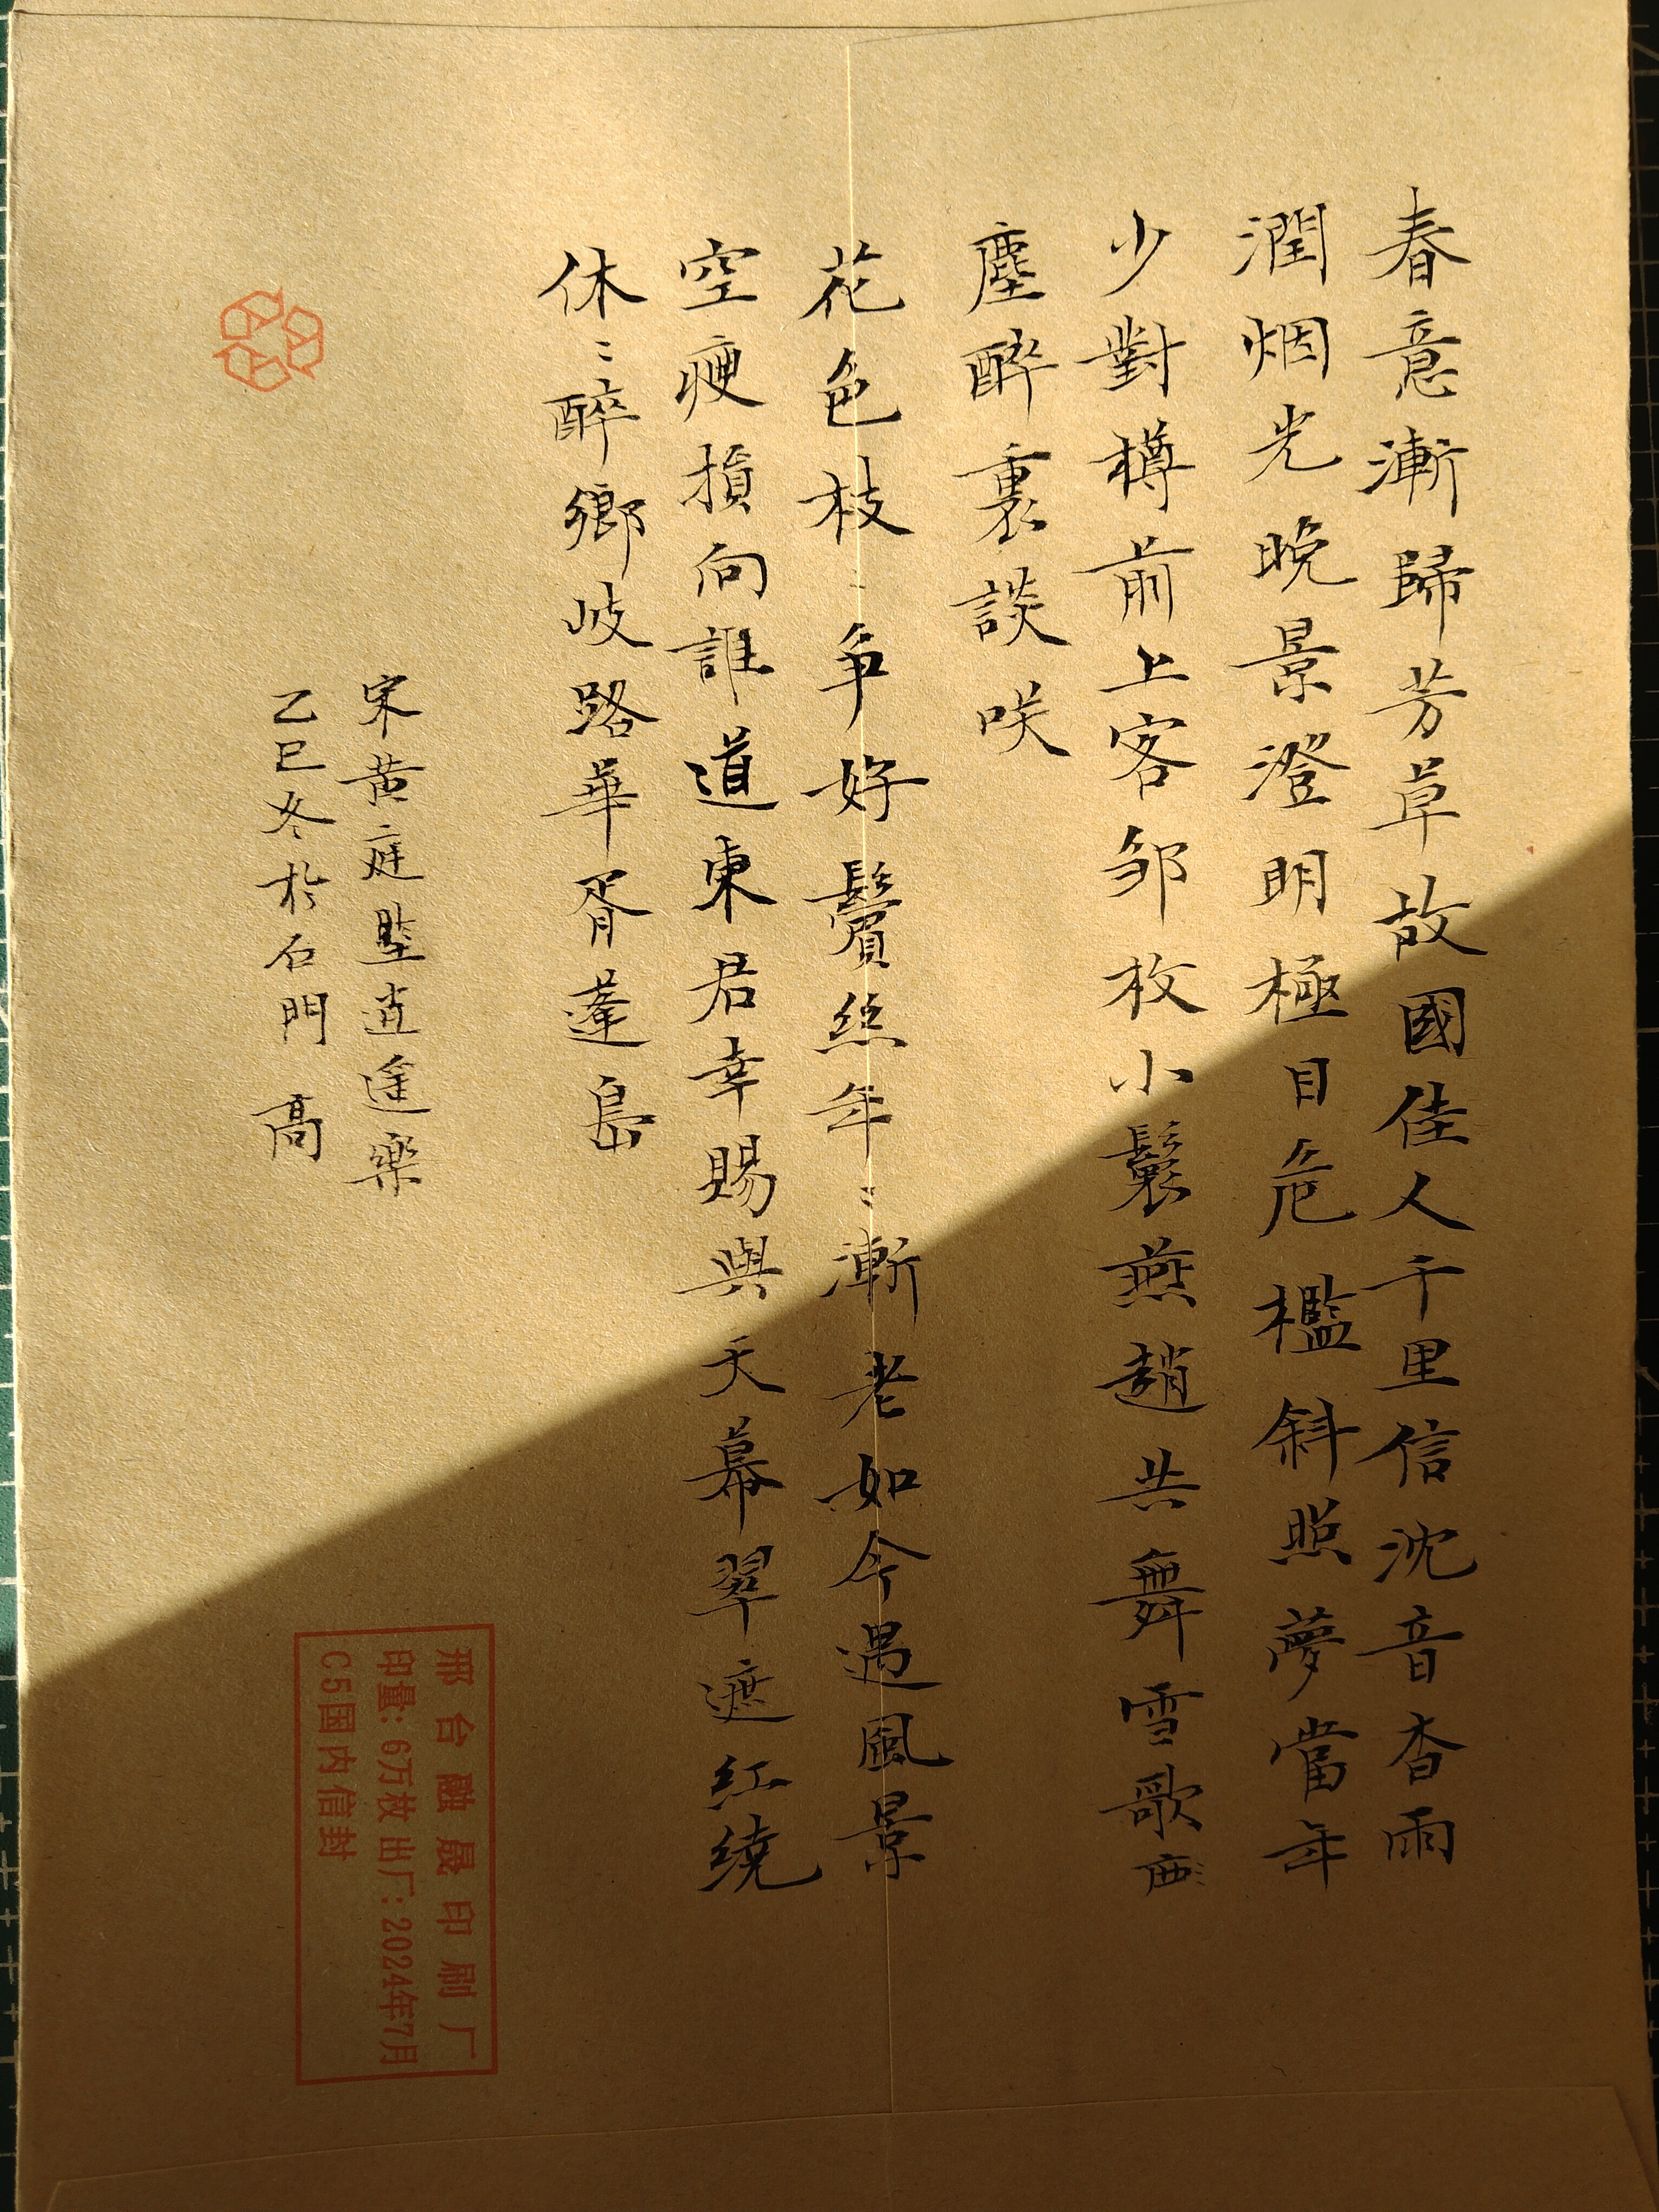 春意漸歸芳草故國佳人千里信沈音杳雨
潤烟光晚景澄明極目危檻斜照夢當年
少對樽前上客邹枚小鬟燕趙共舞雪歌
塵醉裏談咲
花色枝〻争好鬢絲年〻漸老如今遇風景
空瘦損向誰道東君幸賜與天幕翠遮紅繞
休〻醉鄉岐路華胥蓬島
宋黄庭堅逍遥樂
乙巳冬於石門 高
邢台融晟印刷厂
印量：6万枚 出厂：2024年7月
C5国内信封